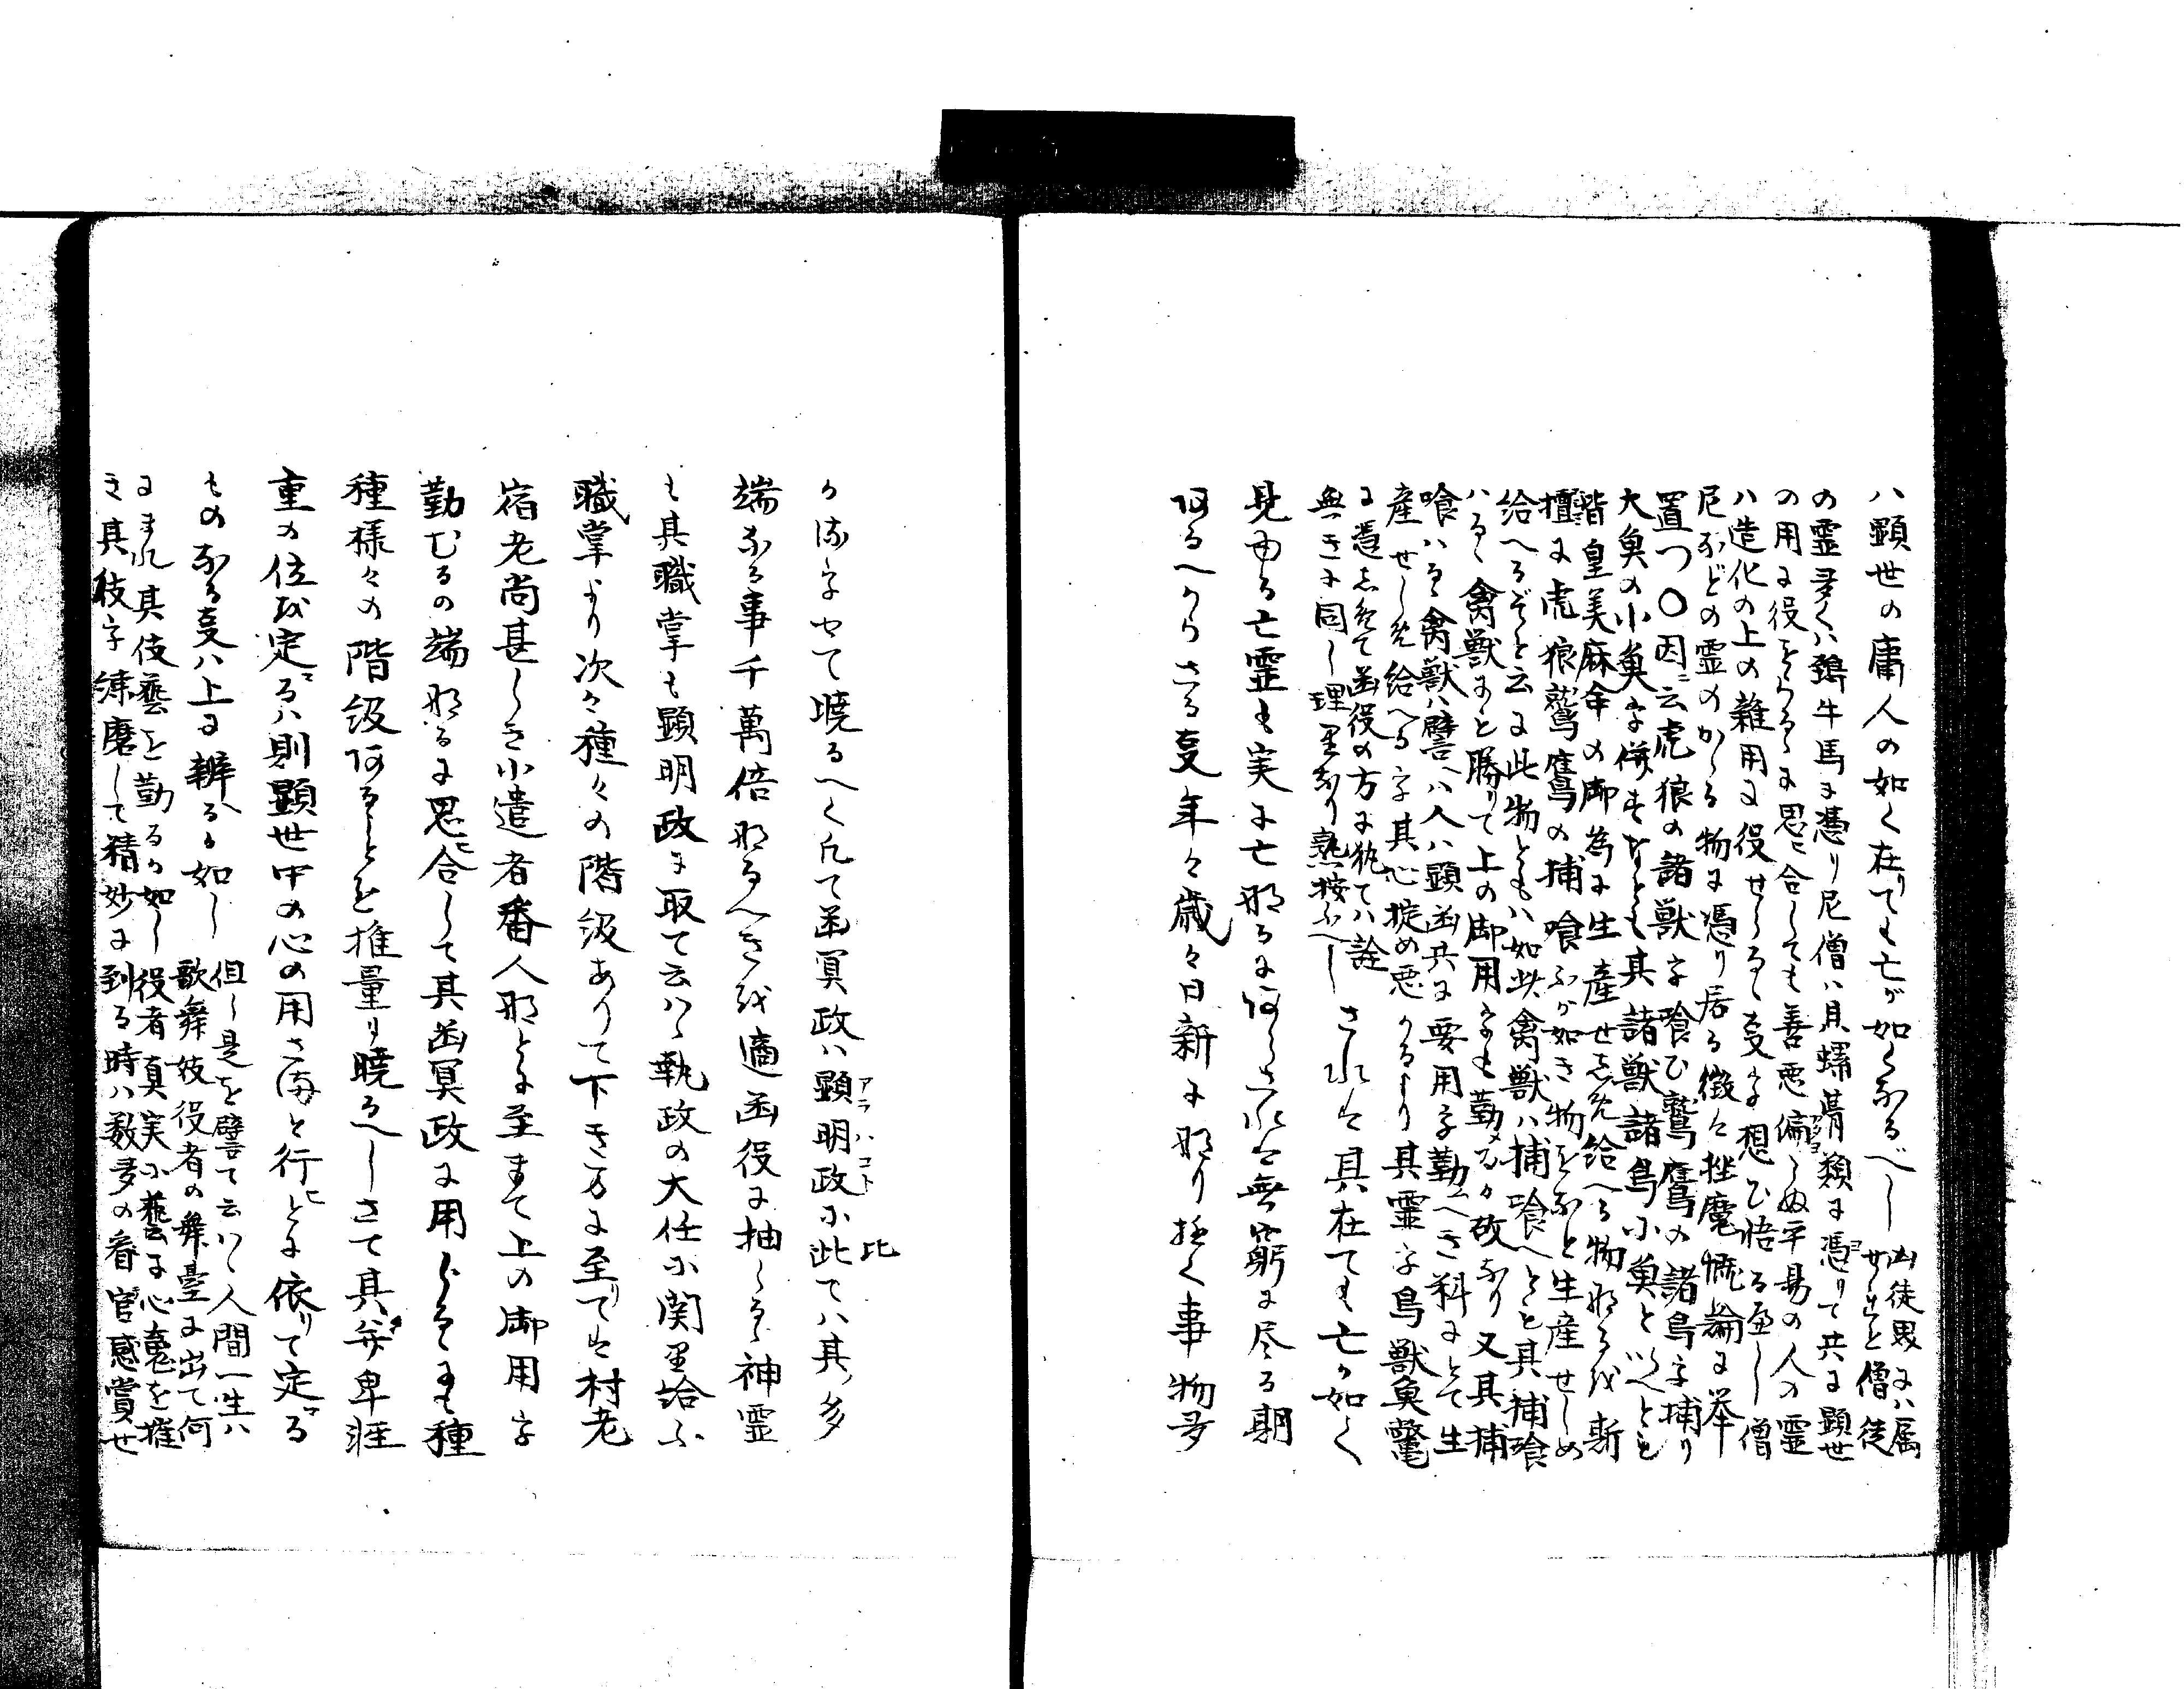 ハ顕世の庸人の如く在りても亡が如くなるべし
凶徒界にハ属
せらると僧徒
の霊多くハ鶏牛馬に憑り尼僧ハ貝螺蛸類に憑りて共に顕世
の用に役をらるゝに思ヒ合しても善悪偏らぬ平易の人の霊
ハ造化の上の雑用に役せらるゝ支を想ひ悟る可し僧
尼などの霊のかゝる物に憑り居る徴ハ挫魔慨論に挙
置つ〇因ニ云虎狼の諸獣を喰ひ鷲鷹の諸鳥を捕り
大魚の小魚を併すなとも其諸獣諸鳥小魚といへとも
皆皇美麻命の御為に生産せしめ給へる物なるを斯
檀に虎狼鷲鷹の捕喰ふが如き物をなと生産せしめ
給へるぞと云に此物ともハ如此禽獣ハ捕喰へとも其捕喰
ハるゝ禽獣よと勝りて上の御用をも勤むるか故なり又其捕
喰ハるゝ禽獣ハ譬ヘハ人ハ顕幽共に要用を勤へき科にとて生
産せしめ給へるを其心掟め悪かるより其霊を鳥獣魚鼈
に憑しめて幽役の方に執てハ詮
無きに同し理里なり熟按ふへしされは具在ても亡か如く
見ゆる亡霊も実に亡なるに何らされは無窮に尽る期
何るへからさる支年々歳々日新になり極く事物多
か流をやて暁るへく凡て幽冥政ハ顕明政に比てハ其多
アラハコト
比
端なる事千萬倍なるへきを適幽役に抽らるゝ神霊
も其職掌も顕明政に取て云ハゝ執政の大任に関里給ふ
職掌より次々種々の階級ありて下き方に至りては村老
宿老尚甚しき小遣者番人なとに至まて上の御用を
勤むるの端なるに思ヒ合して其幽冥政に用らるゝも種
種様々の階級何ることを推量り暁るへしさて其尊卑軽
重の位を定るハ則顕世中の心の用さ満と行とに依りて定る
ものなる支ハ上に辨るか如し
但し是を譬て云ハゝ人間一生ハ
歌舞妓役者の舞臺に出て何
にまれ其伎藝を勤るか如し役者真実に藝に心裏を摧
き其伎を練磨して精妙に到る時ハ数多の看官感賞せ